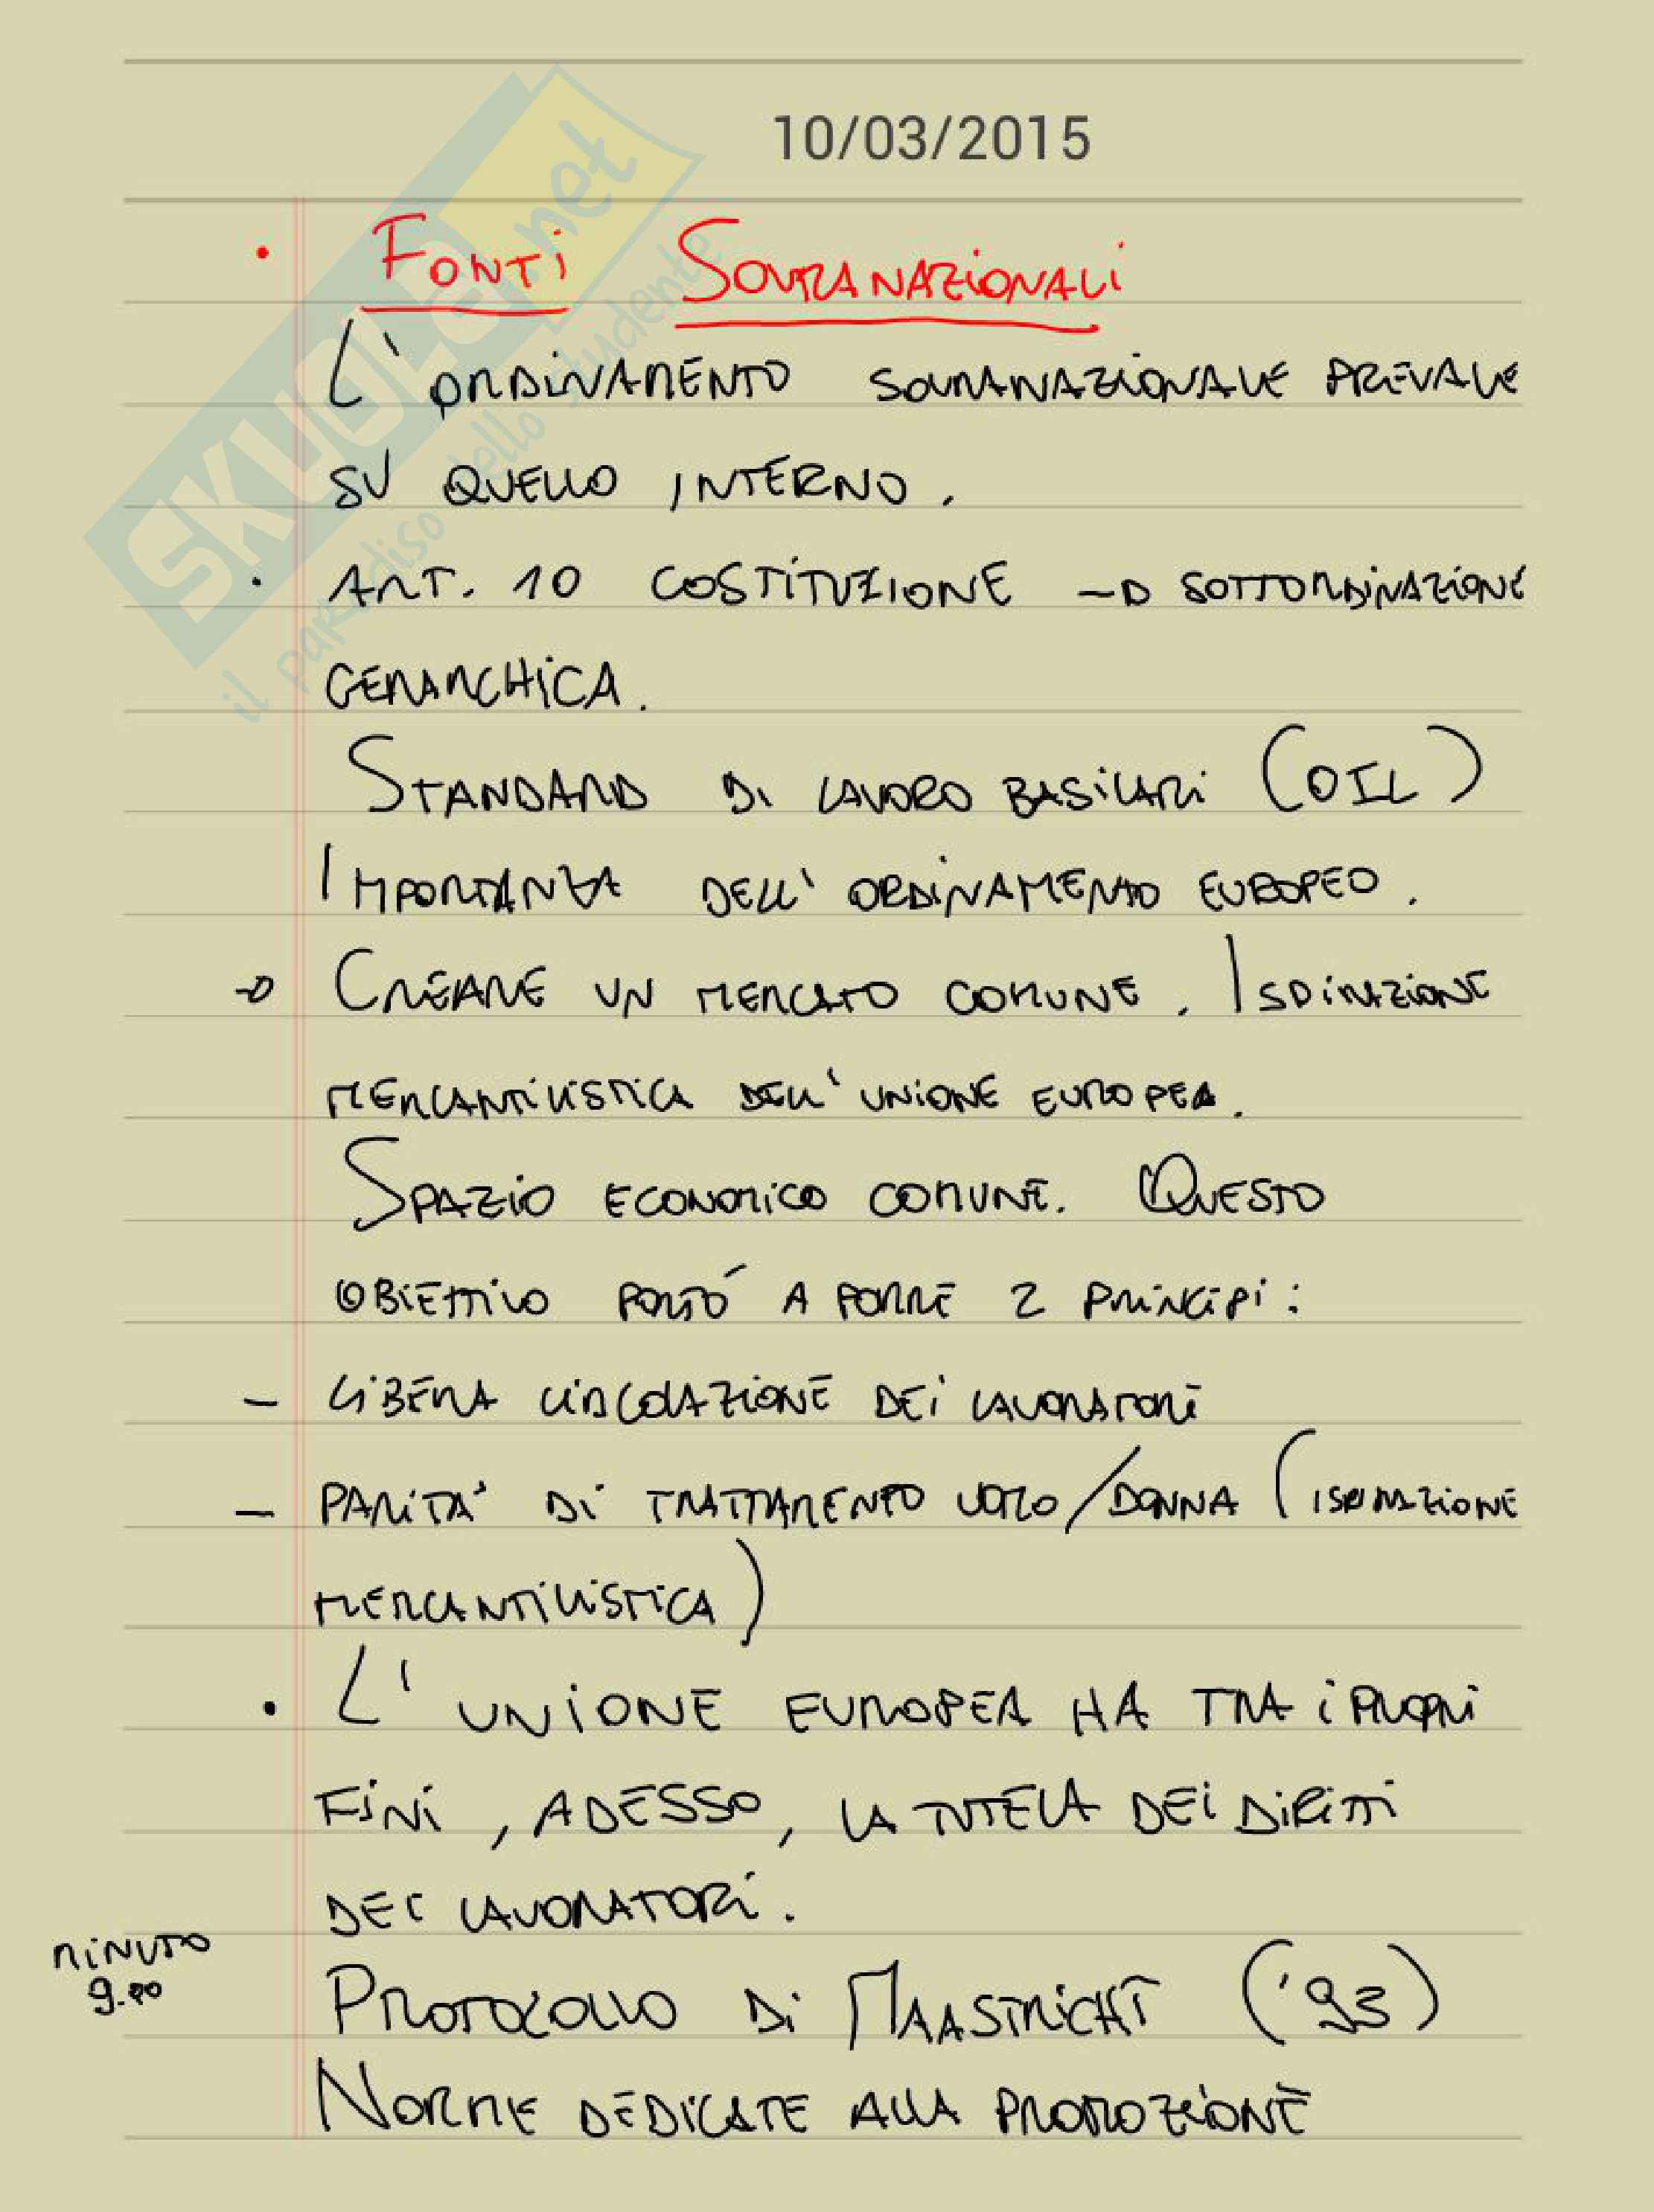 10/03/2015
• FONTI SOVRANAZIONALI
L'ORDINAMENTO SOVRANAZIONALE PREVALE
SU QUELLO INTERNO.
• ART. 10 COSTITUZIONE → SOTTORDINAZIONE
GERARCHICA.
STANDARD DI LAVORO BASILARI (OIL)
IMPORTANZA DELL'ORDINAMENTO EUROPEO.
→ CREARE UN MERCATO COMUNE. ISPIRAZIONE
MERCANTILISTICA DELL'UNIONE EUROPEA.
SPAZIO ECONOMICO COMUNE. QUESTO
OBIETTIVO PORTÓ A PORRE 2 PRINCIPI:
- LIBERA CIRCOLAZIONE DEI LAVORATORI
- PARITA' DI TRATTAMENTO UOMO/DONNA (ISPIRAZIONE
MERCANTILISTICA)
• L'UNIONE EUROPEA HA TRA I PROPRI
FINI, ADESSO, LA TUTELA DEI DIRITTI
DEI LAVORATORI.
MINUTO
PROTOCOLLO DI MAASTRICHT ('93)
NORME DEDICATE ALLA PROMOZIONE
SKUOLA.net
il paradiso dello studente